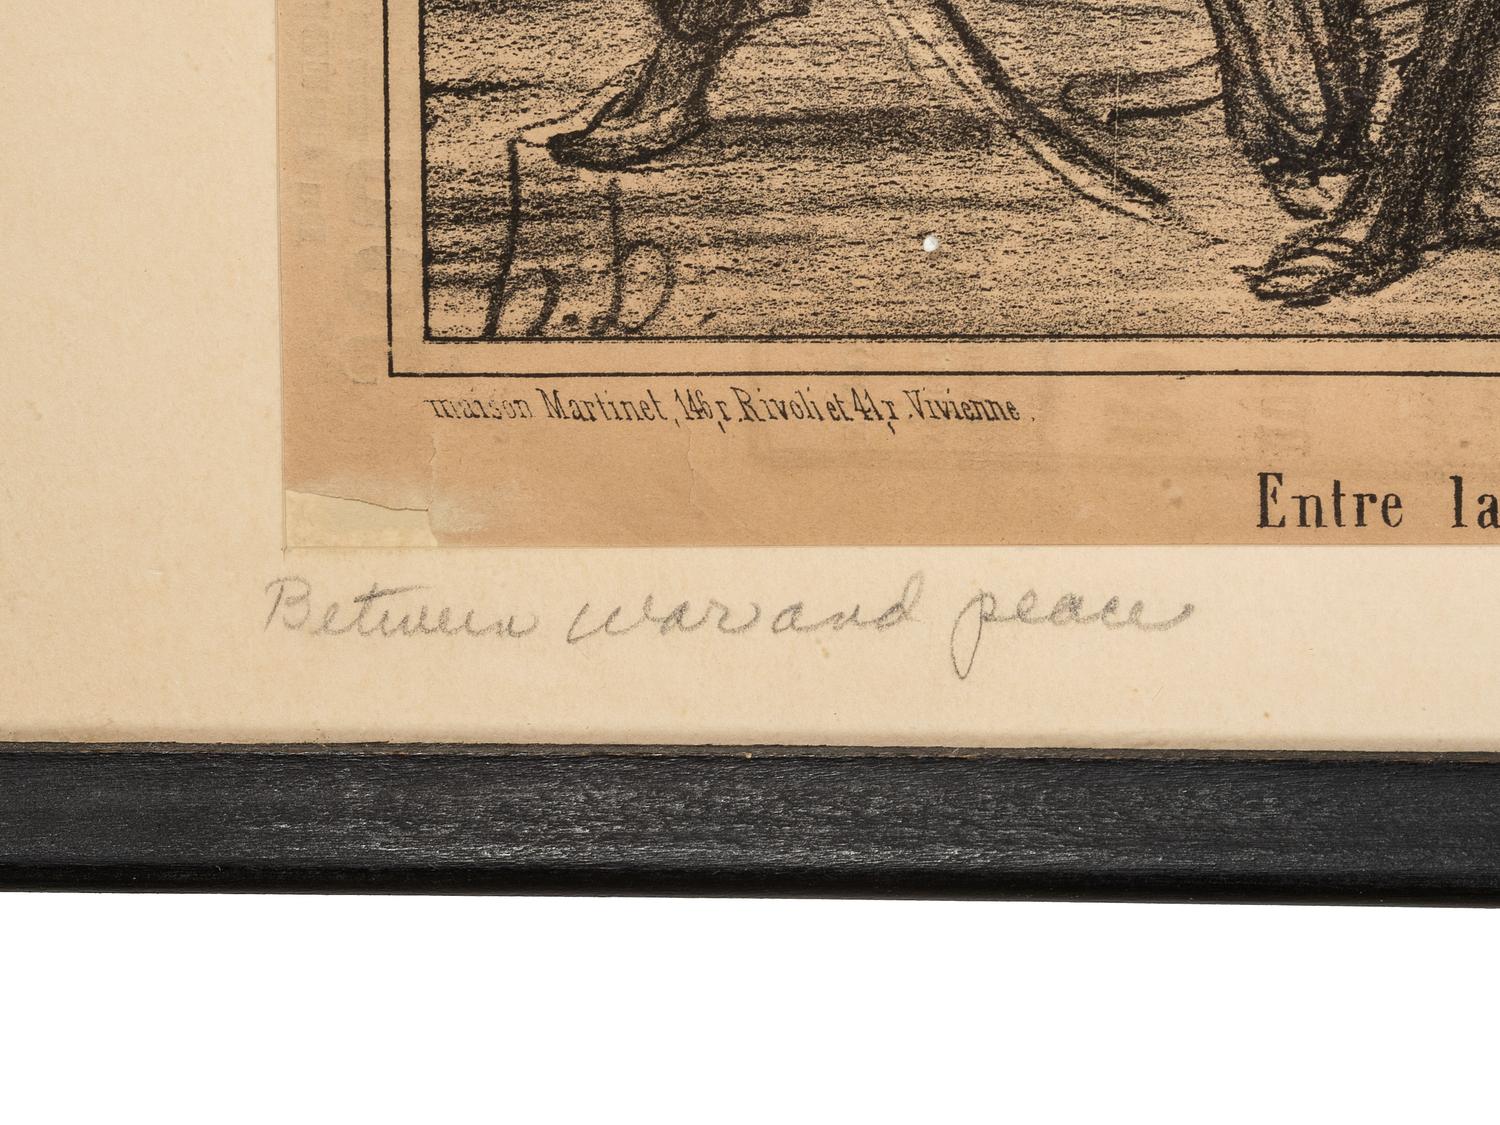 h.D
maison Martinet, 146, r. Rivoli et 41, r. Vivienne.
Entre la
Between war and peace